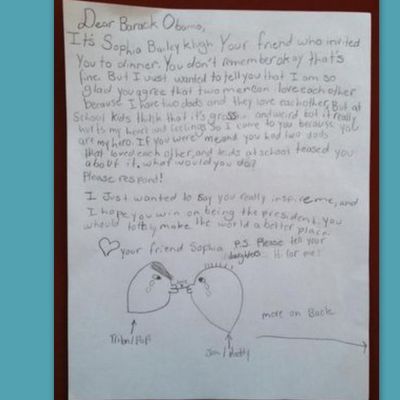 Dear Barack Obama,
It's Sophia Bailey klugh Your friend who invited
You to dinner. You don't remember okay that's
fine. But I Just wanted to tell you that I am so
glad you agree that two men can love each other
because I have two dads and they love each other. But at
School kids think that it's gross and weird but it really
hurts my heart and feelings. So I come to you because you
are my hero. If you were me and you had two dads
that loved each other, and kids at school teased you
about it. what would you do?
Please respond!
I Just wanted to say you really inspire me, and
I hope you win on being the president. You
whould totaly make the world a better place.
your friend Sophia P.S. Please tell your
daughters Hi for me!
more on Back